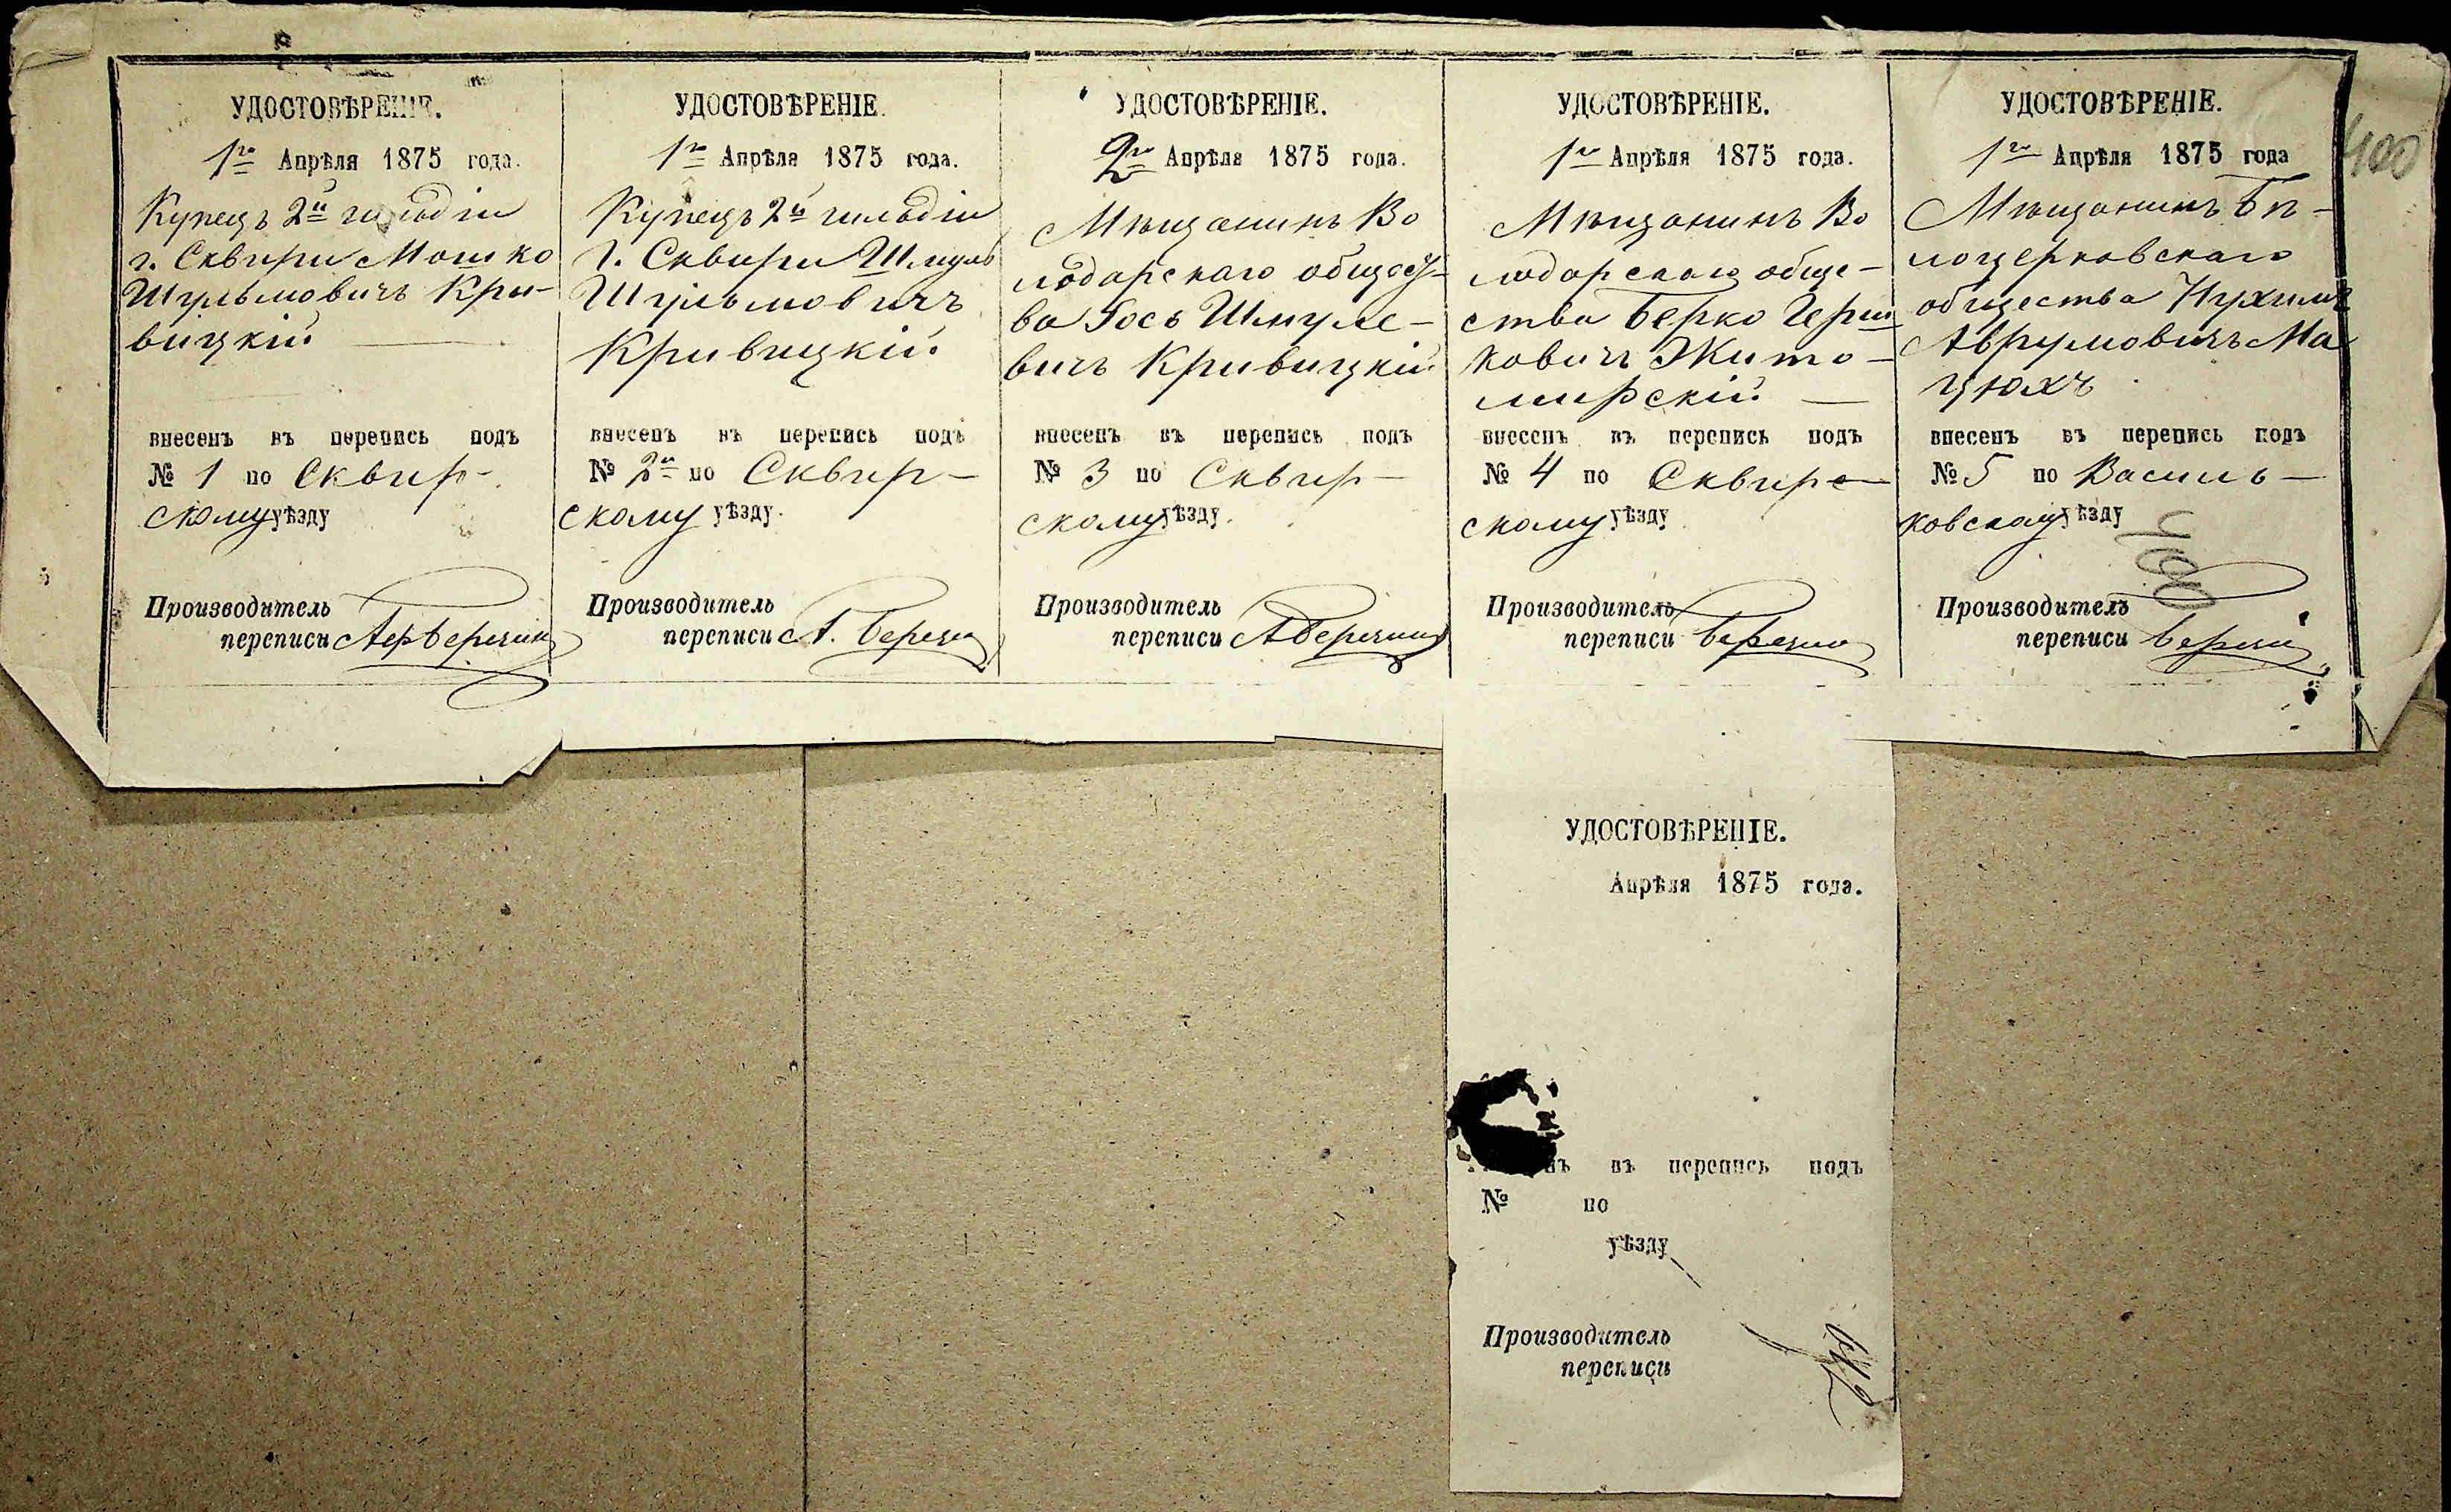 УДОСТОВѢРЕНІЕ.
1го Апрѣля 1875 года.
Купецъ 2й гильдіи
г. Сквири Мошко
Шульмовичъ Кри-
вицкій
внесенъ въ перепись подъ
№ 1 по Сквир-
скому уѣзду
Производитель
переписи
УДОСТОВѢРЕНІЕ.
1го Апрѣля 1875 года.
Купецъ 2й гильдіи
г. Сквири Шмуль
Шульмовичъ
Кривицкій
внесенъ въ перепись подъ
№ 2й по Сквир-
скому уѣзду.
Производитель
переписи
УДОСТОВѢРЕНІЕ.
2го Апрѣля 1875 года.
Мѣщанинъ Во
лодарскаго общест-
ва Іось Шмуле-
вичъ Кривицкій
внесенъ въ перепись подъ
№ 3 по Сквир-
скому уѣзду.
Производитель
переписи
УДОСТОВѢРЕНІЕ.
1го Апрѣля 1875 года.
Мѣщанинъ Во
лодарскаго обще-
ства Берко Герш
ковичъ Жито-
мирскій
внесенъ въ перепись подъ
№ 4 по Сквирс-
скому уѣзду
Производитель
переписи
УДОСТОВѢРЕНІЕ.
1го Апрѣля 1875 года
400
Мѣщанинъ Бѣ-
лоцерковскаго
общества Нухимъ
Аврумовичъ Ма
цюхъ
внесенъ въ перепись подъ
№ 5 по Василь-
ковскому уѣзду
400
Производитель
переписи
УДОСТОВѢРЕНІЕ.
Апрѣля 1875 года.
въ перепись подъ
№ по
уѣзду
Производитель
переписи